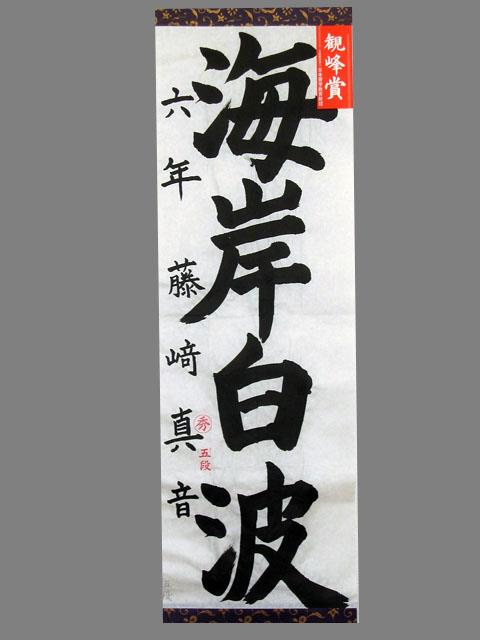 観峰賞
海岸白波
六年 藤﨑真音
秀
五段